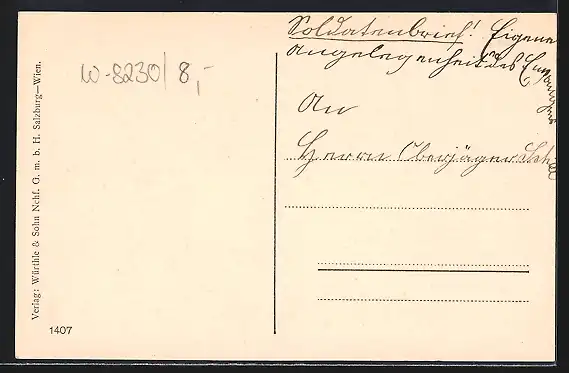 Soldatenbrief! Eigene
Angelegenheit des Empfängers
An
Herrn Oberjäger
W-8230/8,-
Verlag: Würthle & Sohn Nchf. G. m. b. H. Salzburg—Wien.
1407